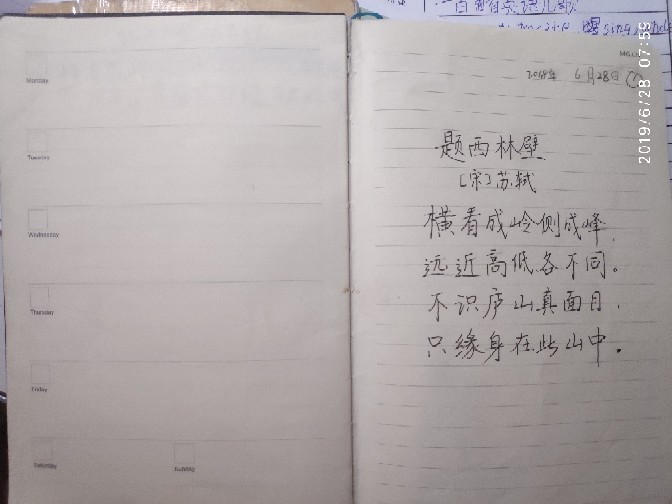 Monday
Tuesday
Wednesday
Thursday
Friday
Saturday
Sunday
6月28日
题西林壁
[宋]苏轼
横看成岭侧成峰,
远近高低各不同。
不识庐山真面目,
只缘身在此山中。
2019/6/28 07:59